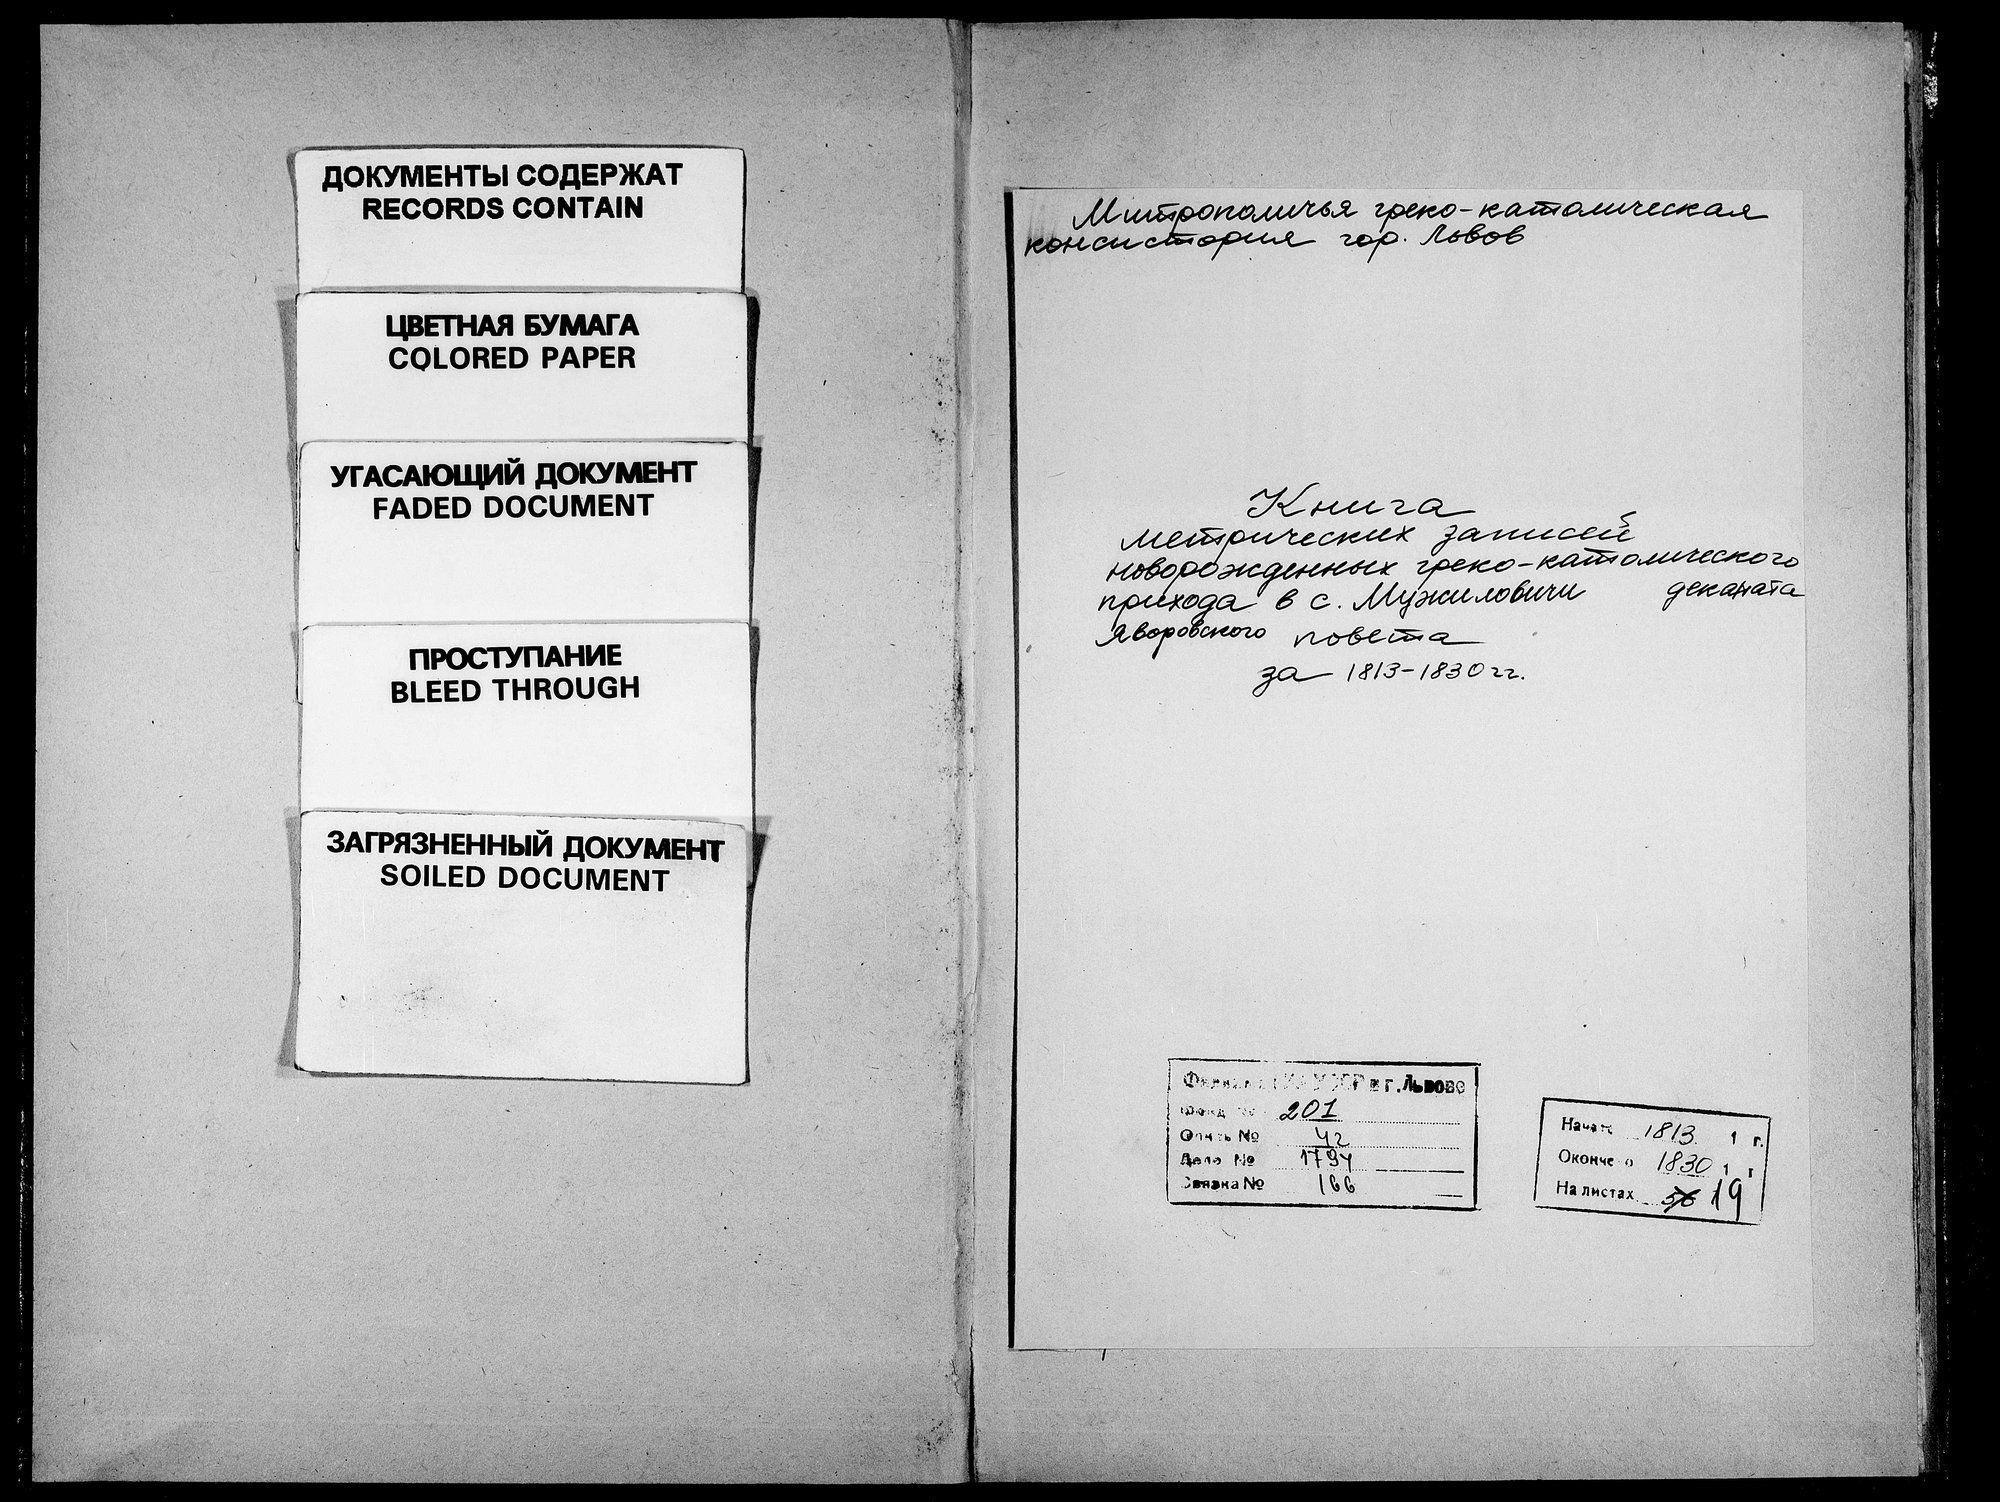 ДОКУМЕНТЫ СОДЕРЖАТ
RECORDS CONTAIN
ЦВЕТНАЯ БУМАГА
COLORED PAPER
УГАСАЮЩИЙ ДОКУМЕНТ
FADED DOCUMENT
ПРОСТУПАНИЕ
BLEED THROUGH
ЗАГРЯЗНЕННЫЙ ДОКУМЕНТ
SOILED DOCUMENT
Митрополичья греко-католическая
консистория гор. Львов
Книга
метрических записей
новорожденных греко-католического
прихода в с. Мужиловичи деканата
Яворовского повета
за 1813-1830 гг.
Филиал ЦГИА УССР в г. Львове
Фонд № 201
Опись № 4г
Дело № 1794
Связка № 166
Начато 1813 1 г.
Окончено 1830 1 г
На листах 19